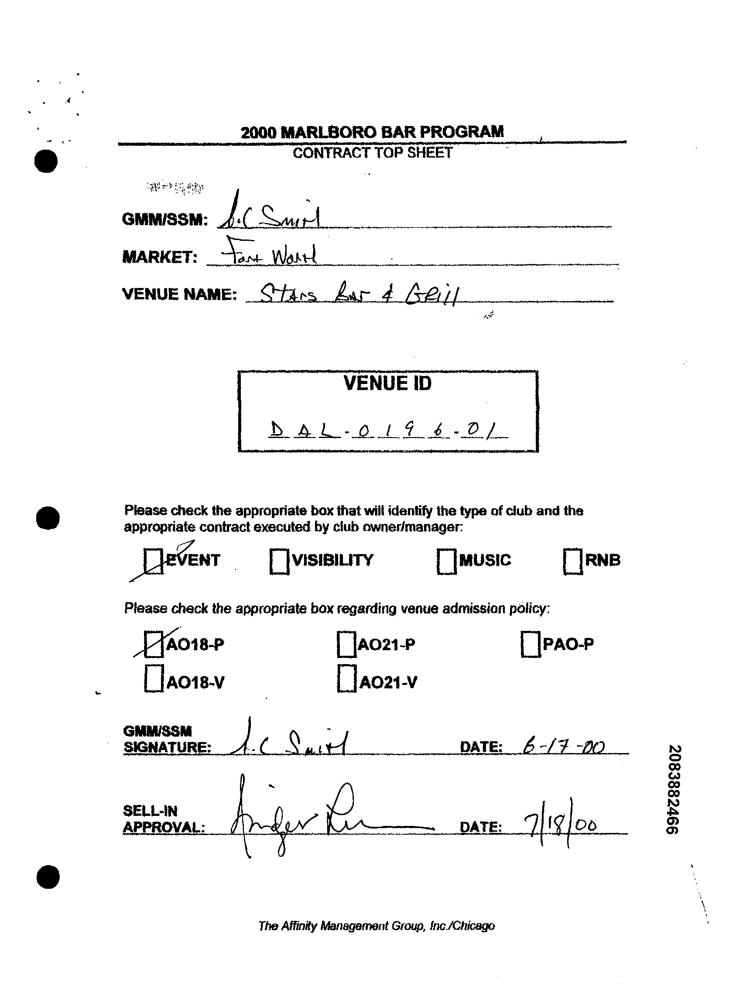 2000 MARLBORO BAR PROGRAM
CONTRACT TOP SHEET
GMM/SSM: S.C Smith
MARKET: Fort Worth
VENUE NAME: Stars Bar & Grill
VENUE ID
DAL-0196-01
Please check the appropriate box that will identify the type of club and the
appropriate contract executed by club owner/manager:
EVENT VISIBILITY MUSIC RNB
Please check the appropriate box regarding venue admission policy:
AO18-P AO21-P PAO-P
AO18-V AO21-V
GMM/SSM
SIGNATURE: S.C Smith DATE: 6-17-00
SELL-IN
APPROVAL: DATE: 7/18/00
2083882466
The Affinity Management Group, Inc./Chicago